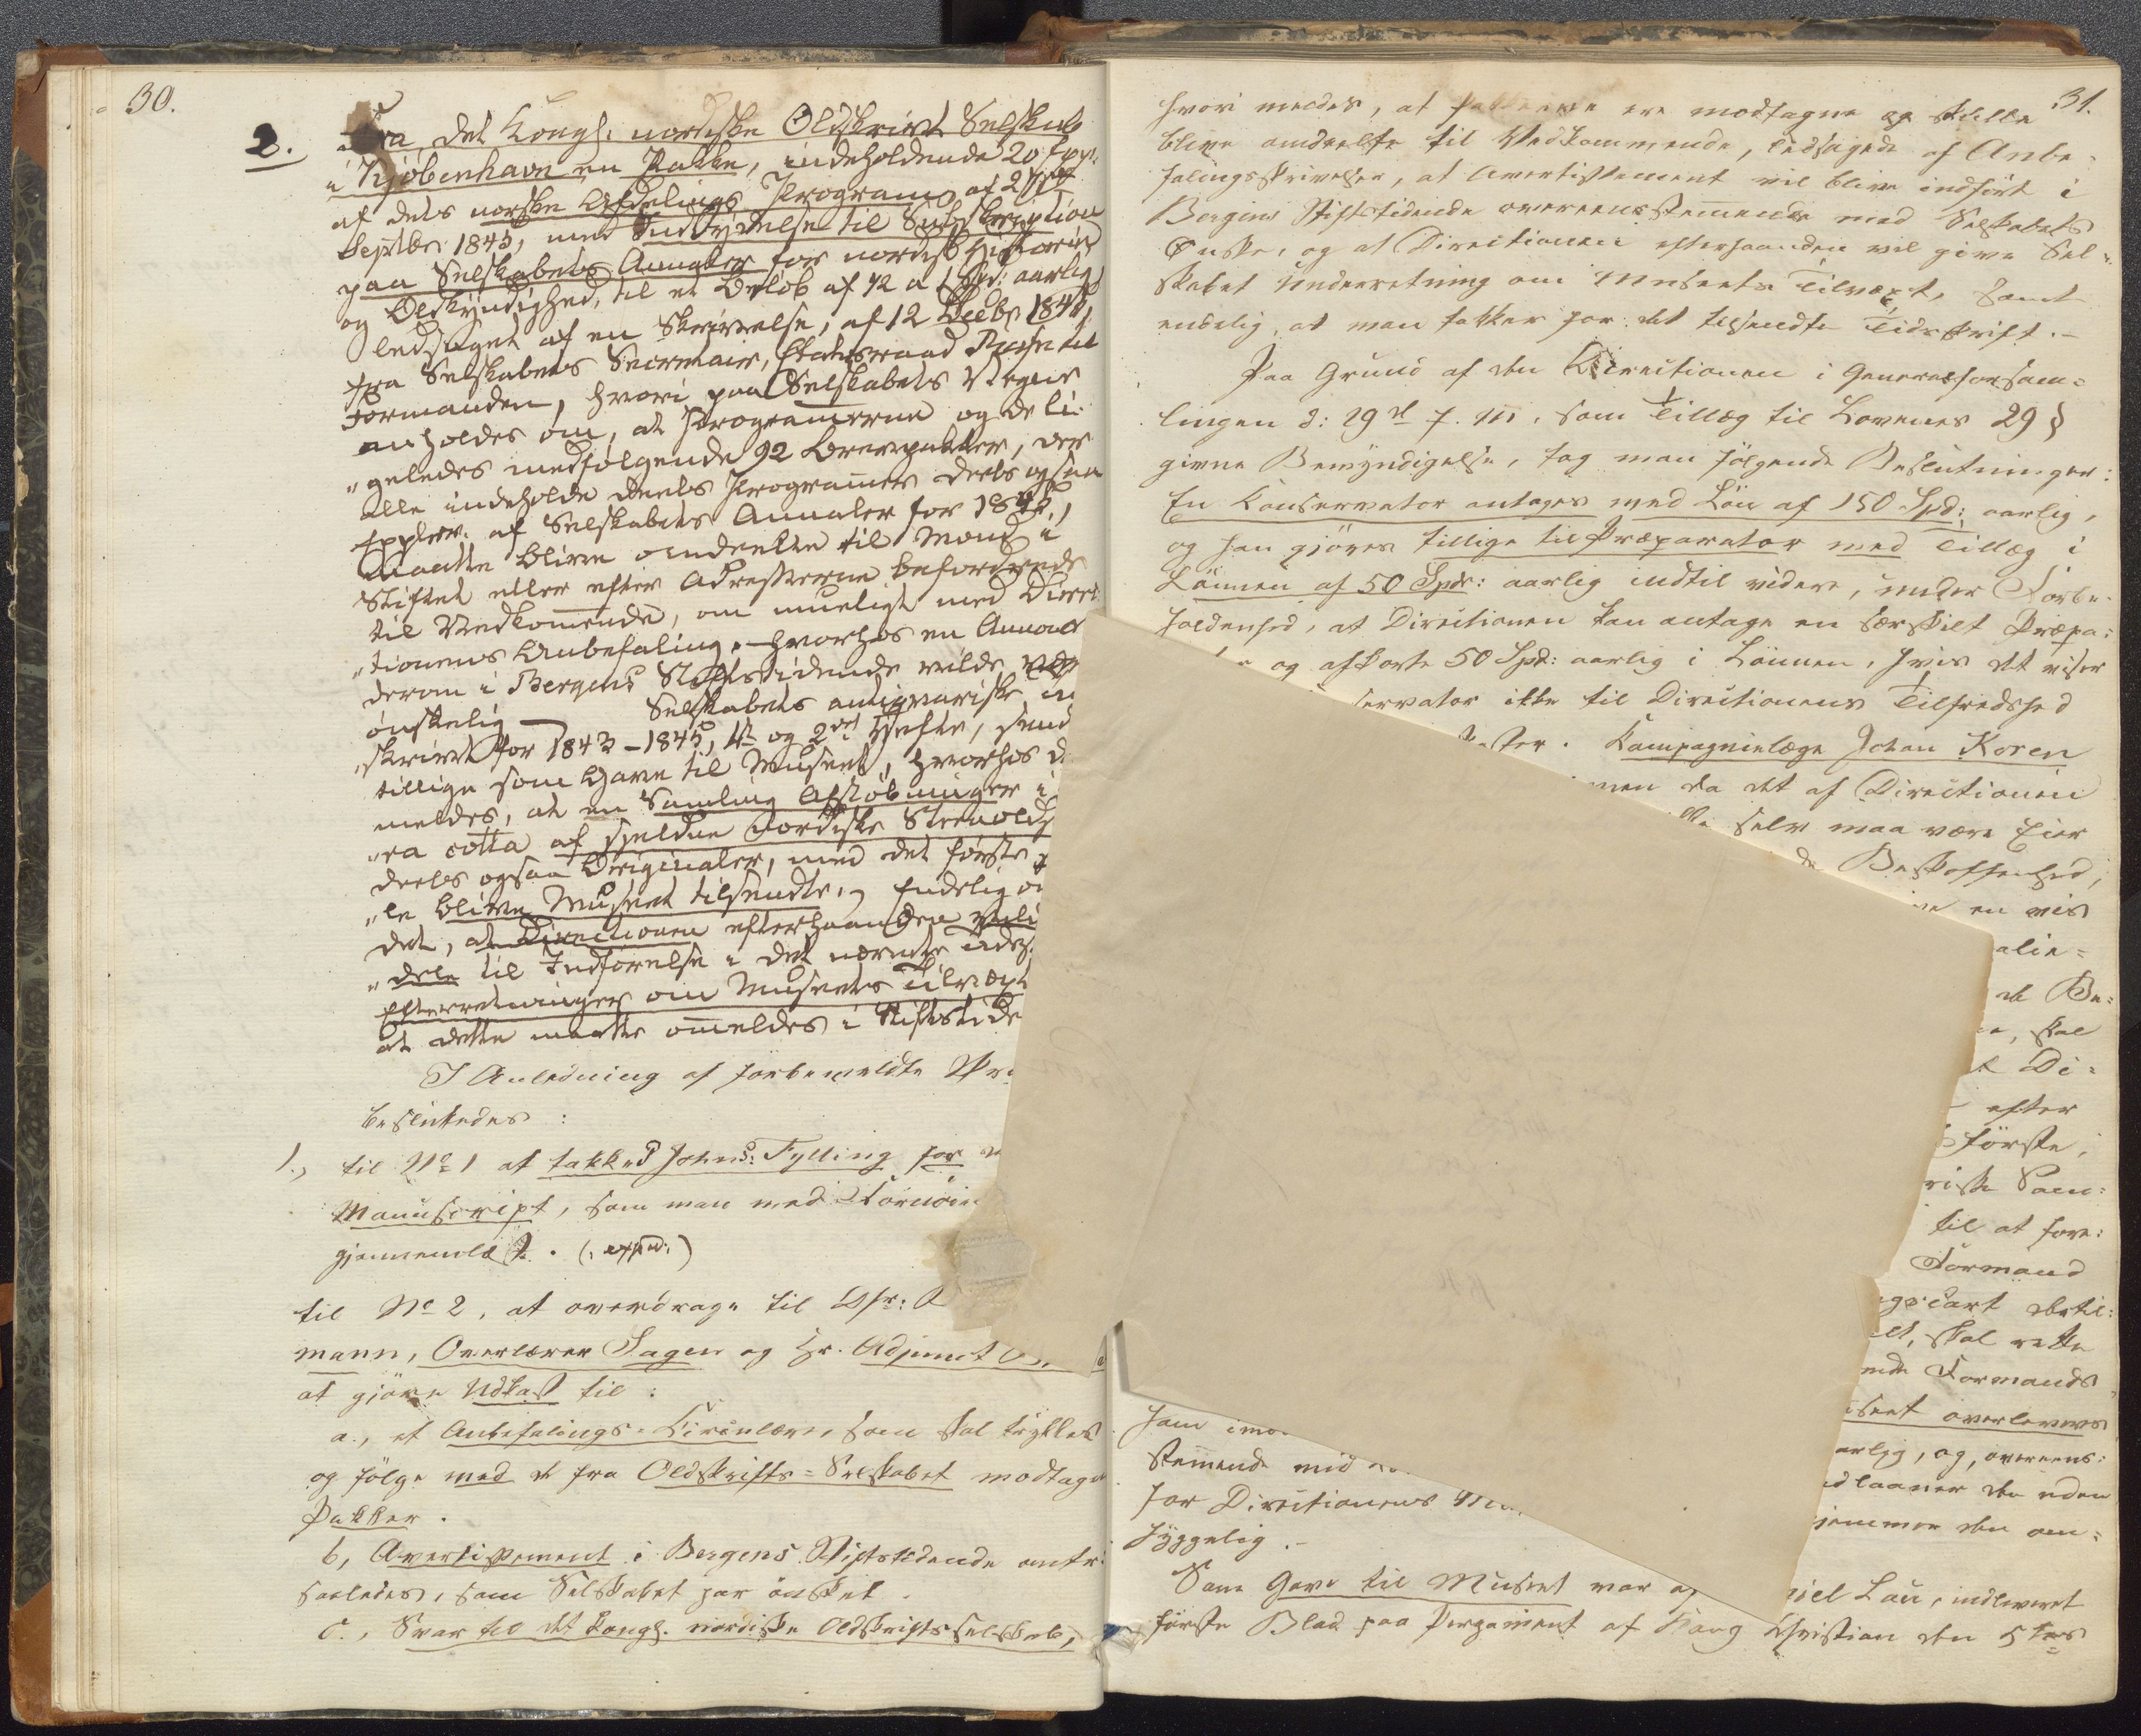 30.
2. Fra det Kongl. nordiske Oldskrivt Selskab
i Kjöbenhavn en Pakke, indeholdende 20 Expl:
af dets norske Afdelings Program af 27de
Septbr. 1845, med Indbydelse til Subskription
paa Selskabets Annaler for nordisk Historie
og Oldkyndighed, til et Belöb af aarlig,
ledsaget af en Skrivelse, af 12 Decbr. 1845,
fra Selskabets Secretair, Etatsraad Rafn til
Formanden, hvori paa Selskabets Vegne
anholdes om, at Programmerne og de li-
"geledes medfölgende 92 Brevpakker, der
alle indeholde deels Programmer deels ogsaa
Expler. af Selskabets Annaler for 1845,
maatte blive omdeelte til Mænd i
Stiftet eller efter Adresserne befordrede
til Vedkommende, om mueligt med Direc-
"tionens Anbefaling, hvorhos en Annonce
derom i Bergens Stiftstidende vilde være
önskelig — Selskabets antiqvariske
"skrivt for 1843-1845, 1te og 2det Hefte, send
tillige som Gave til Museet, hvorhos
meldes, at en Samling Afstöbninger i
"ra cotta af sjeldne nordiske Steenolds
deels ogsaa Originaler, med det förste
"le blive Museet tilsendte, Endelig
det, at Directionen efterhaanden
"dele til Indförelse i det nævnte Tids
Efterretninger om Museets Tilvæxt
at dette maatte ommeldes i Stiftstide
I Anledning af forbemeldte
besluttedes:
1., til No 1 at takke Johns: Fylling for
Manuscript, som man med Fornöie
gjennemlæst. (: exped:)
til No 2, at overdrage til Hr:
mann, Overlærer Sagen og Hr. Adjunct
at gjöre Udkast til:
a., et Anbefalings-Circulære, som skal trykkes
og fölge med de fra Oldskrifts-Selskabet modtagne
Pakker.
b, Avertissement i Bergens Stiftstidende
saaledes, som Selskabet har önsket.
c., Svar til det kongl. nordiske Oldskriftsselskab,
31.
hvori meldes, at Pakkerne ere modtagne og skulle
blive omdeelte til Vedkommende, ledsagede af Anbe-
falingsskrivelser, at Avertissement vil blive indfört i
Bergens Stiftstidende overeensstemmende med Selskabets
Önske, og at Directionen efterhaanden vil give Sel-
skabet Underretning om Museets Tilvæxt, samt
endelig, at man takker for det tilsendte Tidsskrift.-
Paa Grund af den Directionen i Generalforsam-
lingen d: 29de f. M. som Tillæg til Lovenes 29 §
givne Bemyndigelse, tog man fölgende Beslutninger:
En Conservator antages med Lön af 150 Spd: aarlig,
og han gjöres tillige til Præparator med Tillæg i
Lönnen af 50 Spd: aarlig indtil videre, under Forbe-
holdenhed, at Directionen kan antage en særskilt Præpa-
og afkorte 50 Spd: aarlig i Lönnen, hvis det viser
servator ikke til Directionens Tilfredshed
Kompagnielæge Johan Koren
men da det af Directionen
selv maa være Eier
Beskaffenhed,
en vis
alie-
de Be-
skal
Di-
efter
förste,
riske Sam-
til at fore-
Formand
skal rette
Formands
Museet overleveres
aarlig, og, overeens-
udlaaner den uden
hjemmer den om-
ham imo
stemmende med
for Directionens
hyggelig.-
Som Gave til Museet var af niel Lau, indleveret
förste Blad paa Pergament af Kong Christian den 5tes